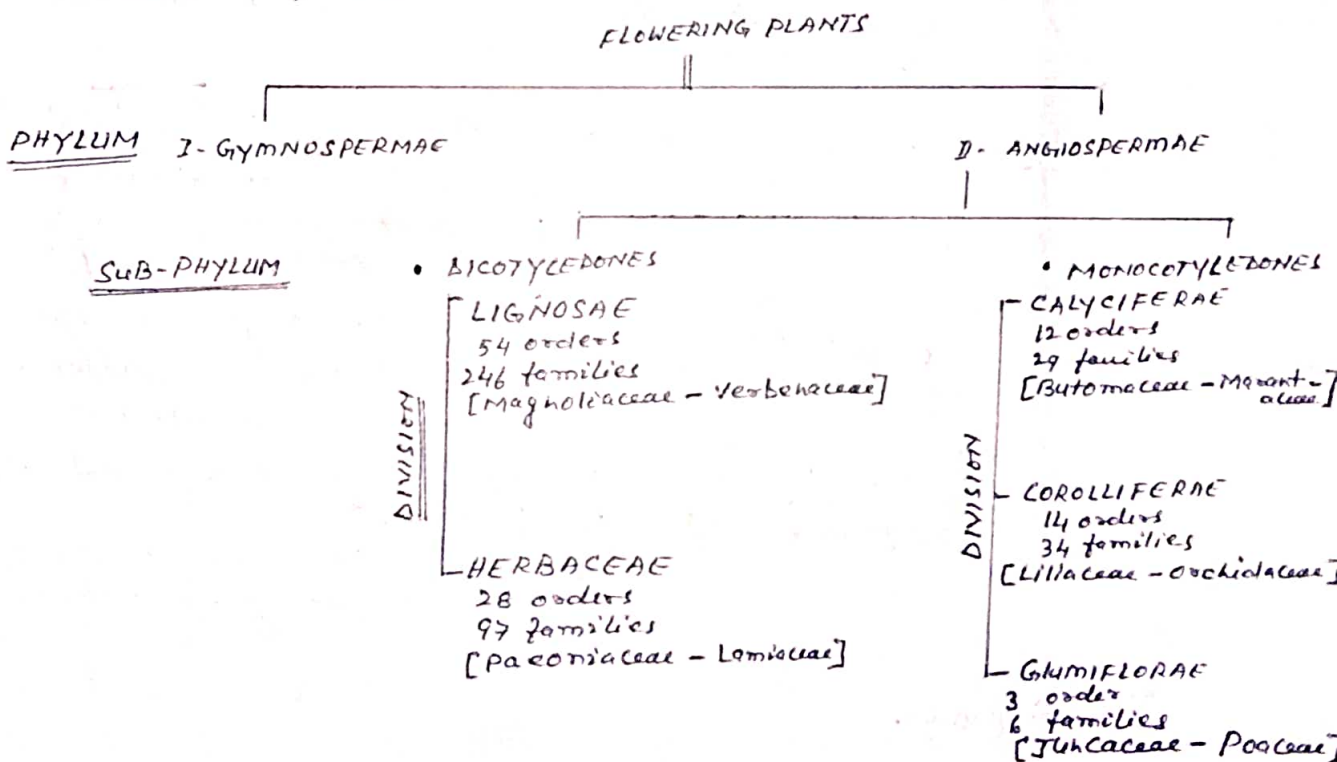 FLOWERING PLANTS
PHYLUM I- GYMNOSPERMAE II- ANGIOSPERMAE
SUB-PHYLUM • DICOTYLEDONES • MONOCOTYLEDONES
DIVISION
LIGNOSAE
54 orders
246 families
[Magnoliaceae - Verbenaceae]
HERBACEAE
28 orders
97 families
[Paeoniaceae - Lamiaceae]
DIVISION
CALYCIFERAE
12 orders
29 families
[Butomaceae - Marant-
aceae]
COROLLIFERAE
14 orders
34 families
[Liliaceae - Orchidaceae]
GLUMIFLORAE
3 order
6 families
[Juncaceae - Poaceae]